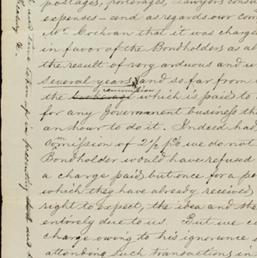 postages, porterages, Lawyers consu
expenses – and as regards our com
Mr Cochran that it was charge
in favor of the Bondholders as al
the result of very arduous and u
several years, and so far from
commission
the which is paid to
for any Government business th
an hour to do it. Indeed had
Comission of 2½ p% we do not
Bondholder would have refused
a charge paid but once for a po
which they have already received
right to expect, the idea and the
entirely due to us. But we c
charge owing to his ignorance
attending such transactions in